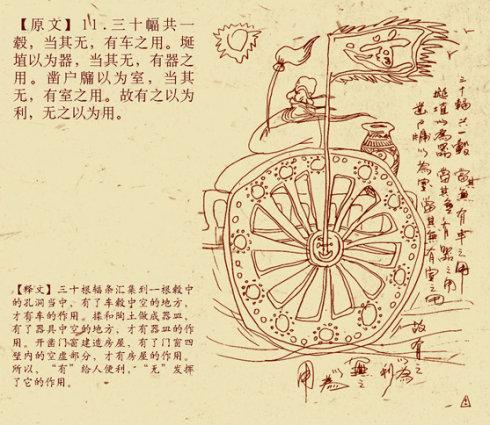 【原文】11.三十幅共一
毂，当其无，有车之用。埏
埴以为器，当其无，有器之
用。凿户牖以为室，当其
无，有室之用。故有之以为
利，无之以为用。
【释文】三十根辐条汇集到一根毂中
的孔洞当中，有了车毂中空的地方，
才有车的作用。揉和陶土做成器皿，
有了器具中空的地方，才有器皿的作
用。开凿门窗建造房屋，有了门窗四
壁内的空虚部分，才有房屋的作用。
所以，“有”给人便利，“无”发挥
了它的作用。
三十辐共一毂 當其無有車之用
埏埴以為器 當其無有器之用
凿户牖以為室 當其無有室之用
故有之
以為利
無之
以為
用